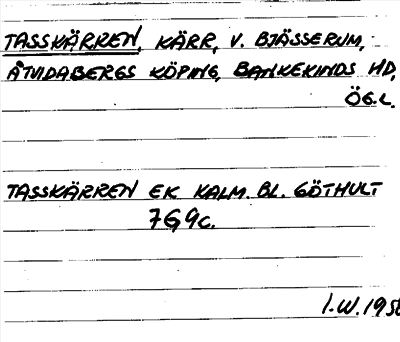 TASSKÄRREN, KÄRR, V. BJÄSSERUM,
ÅTVIDABERGS KÖPING, BANKEKINDS HD,
ÖG.L.
TASSKÄRREN EK KALM. BL. GÖTHULT
7G9c.
I.W. 195